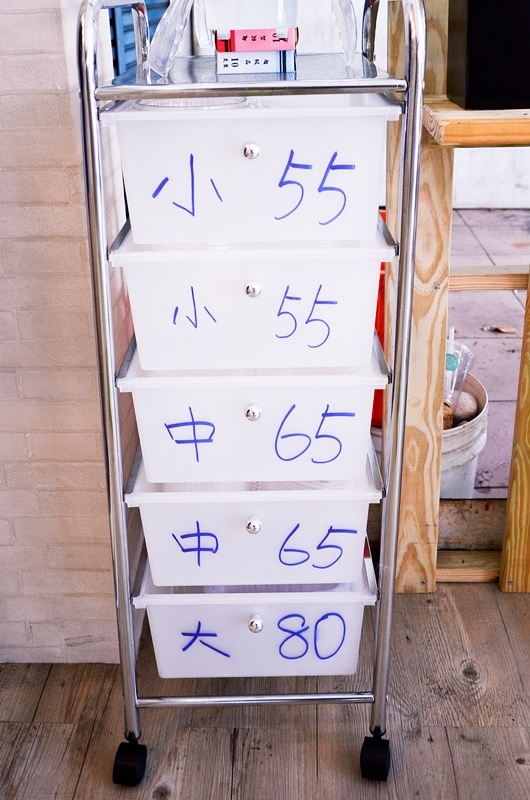 小 55
小 55
中 65
中 65
大 80